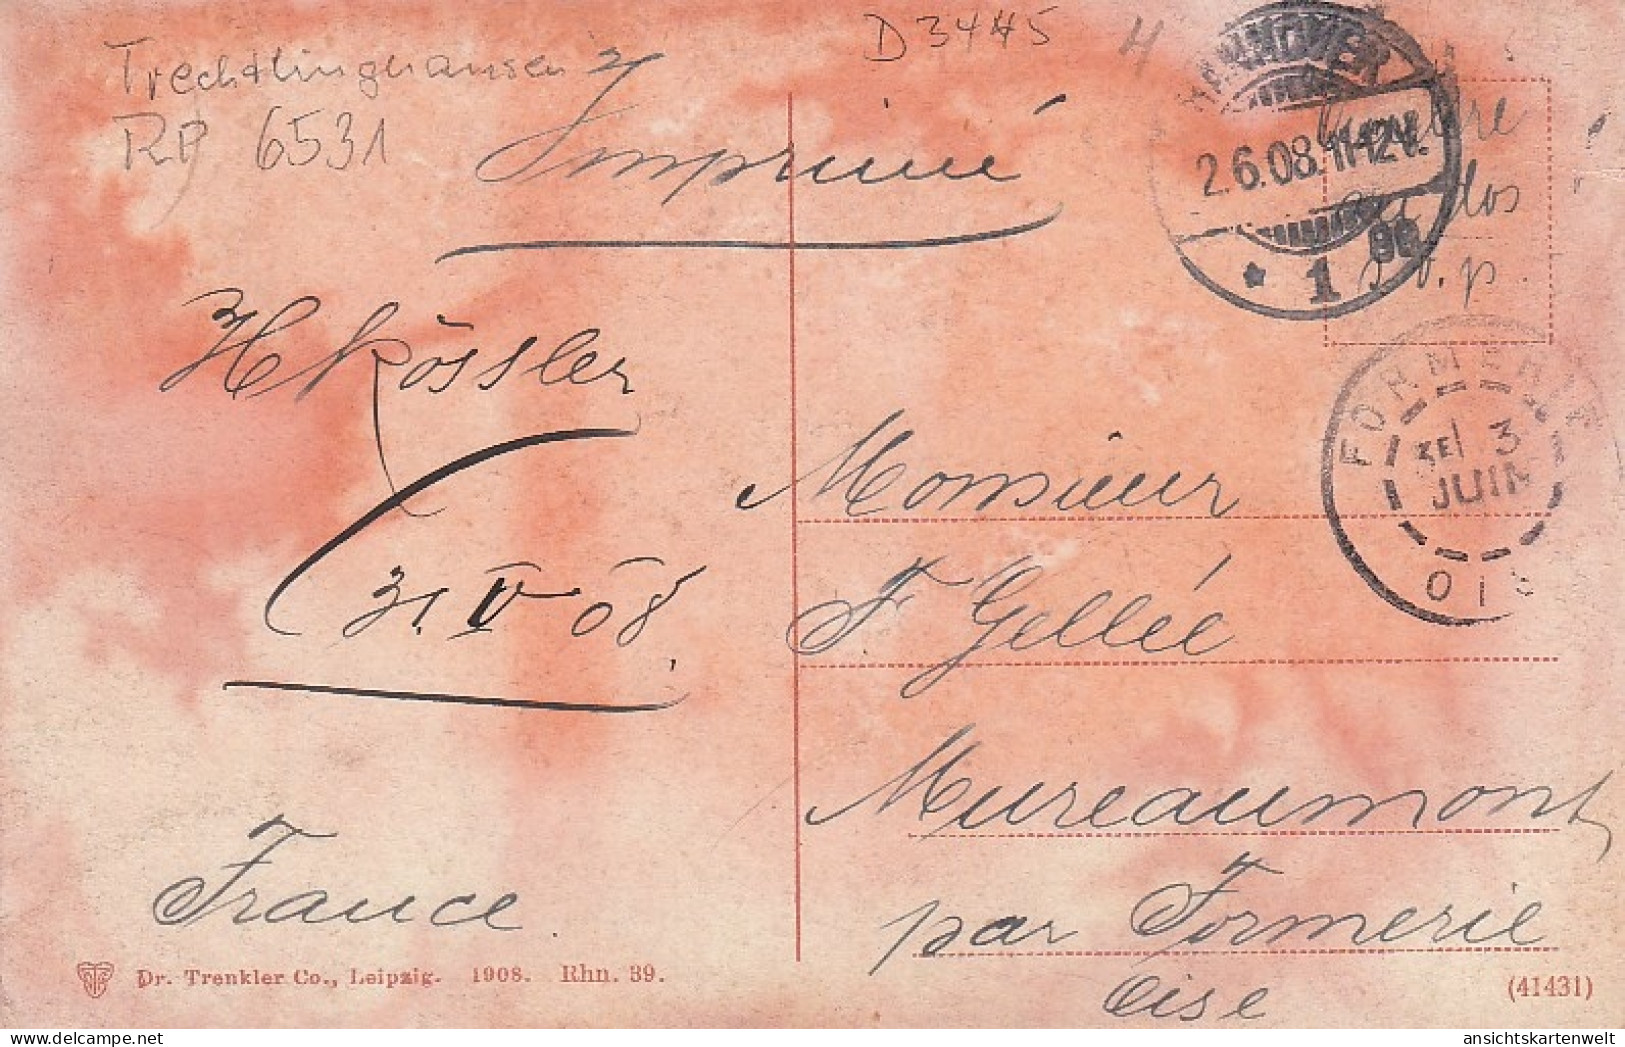 Trechtlinghausen
RP 6531
D 3445
Imprimé
HANNOVER
2.6.08. 11-12V.
* 1
Timbre
au dos
s.v.p.
FORMERIE
3E 3
JUIN
OISE
H Kössler
31. V 08.
Monsieur
F. Gellée
Mureaumont
par Formerie
Oise
France
Dr. Trenkler Co., Leipzig. 1908. Rhn. 39.
(41431)
ansichtskartenwelt